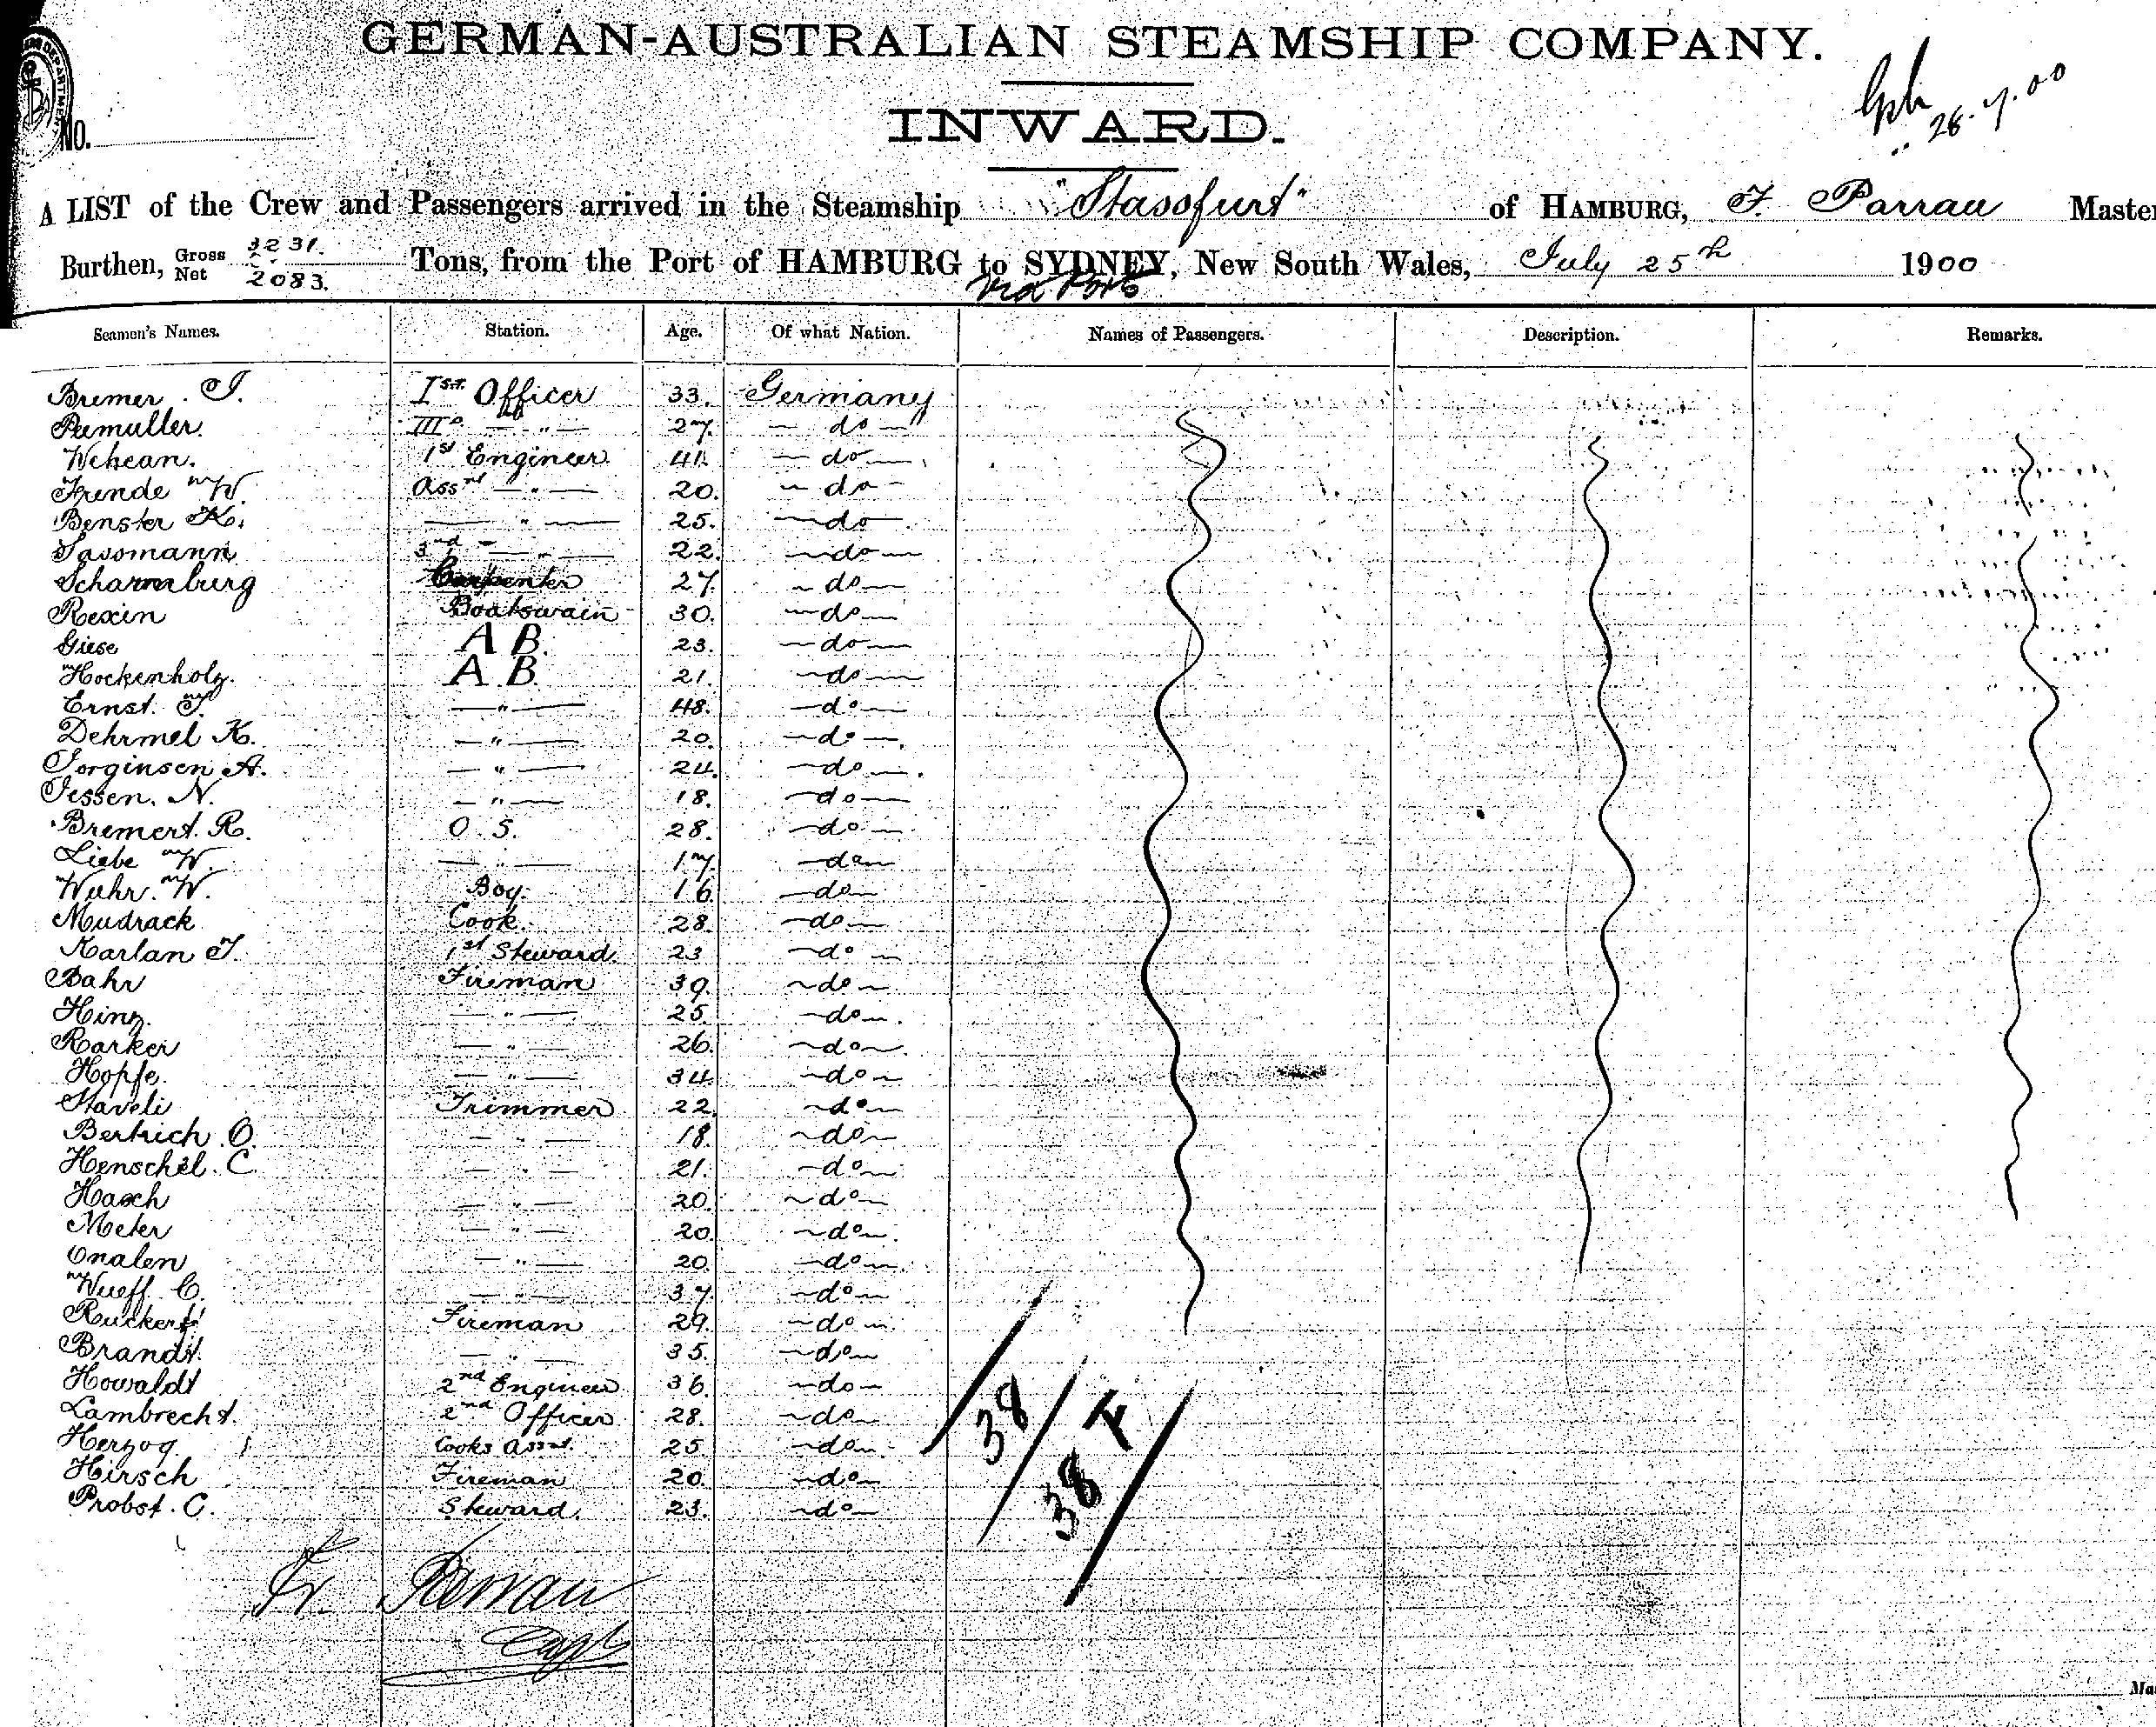 GERMAN-AUSTRALIAN STEAMSHIP COMPANY.
28.7.00
INWARD.
NO.
A LIST of the Crew and Passengers arrived in the Steamship "Stassfurt" of HAMBURG, F. Parrau Master
Burthen, Gross 3231. Net 2083. Tons, from the Port of HAMBURG to SYDNEY, New South Wales, July 25th 1900
via Ports
Seamen's Names. Station. Age. Of what Nation. Names of Passengers. Description. Remarks.
Bremer. J. Ist Officer 33. Germany
Paemuller. IIID — " — 27. — do —
Wehean. 1st Engineer 41. — do —
Frende W. Asst — " — 20. — do —
Benster K. — " — 25. — do —
Sassmann 3rd — " — 22. — do —
Scharmburg Carpenter 27. — do —
Rexin Boatswain 30. — do —
Giese A B. 23. — do —
Hockenholz. A. B. 21. — do —
Ernst. J. — " — 48. — do —
Dehrmel K. — " — 20. — do —
Jorginsen A. — " — 24. — do —
Jessen. N. — " — 18. — do —
Bremert. R. O. S. 28. — do —
Liebe W. — " — 17. — do —
Wuhr. W. Boy. 16 — do —
Mudrack Cook. 28. — do —
Karlan J. 1st Steward. 23 — do —
Bahr Fireman 39. — do —
Hinz. — " — 25. — do —
Rarker — " — 26. — do —
Hopfe. — " — 34. — do —
Staveli Trimmer 22. — do —
Bertrich. O. — " — 18. — do —
Henschel. C. — " — 21. — do —
Hasch — " — 20. — do —
Meter — " — 20. — do —
Onalen — " — 20. — do —
Wueff C. — " — 37. — do —
Ruckert Fireman 29. — do —
Brandt. — " — 35. — do —
Howaldt 2nd Engineer 36. — do —
Lambrecht. 2nd Officer 28. — do —
Herzog Cooks Asst. 25 — do —
Hirsch Fireman 20. — do —
Probst. C. Steward. 23. — do —
38
38
Fr. Parrau
Capt